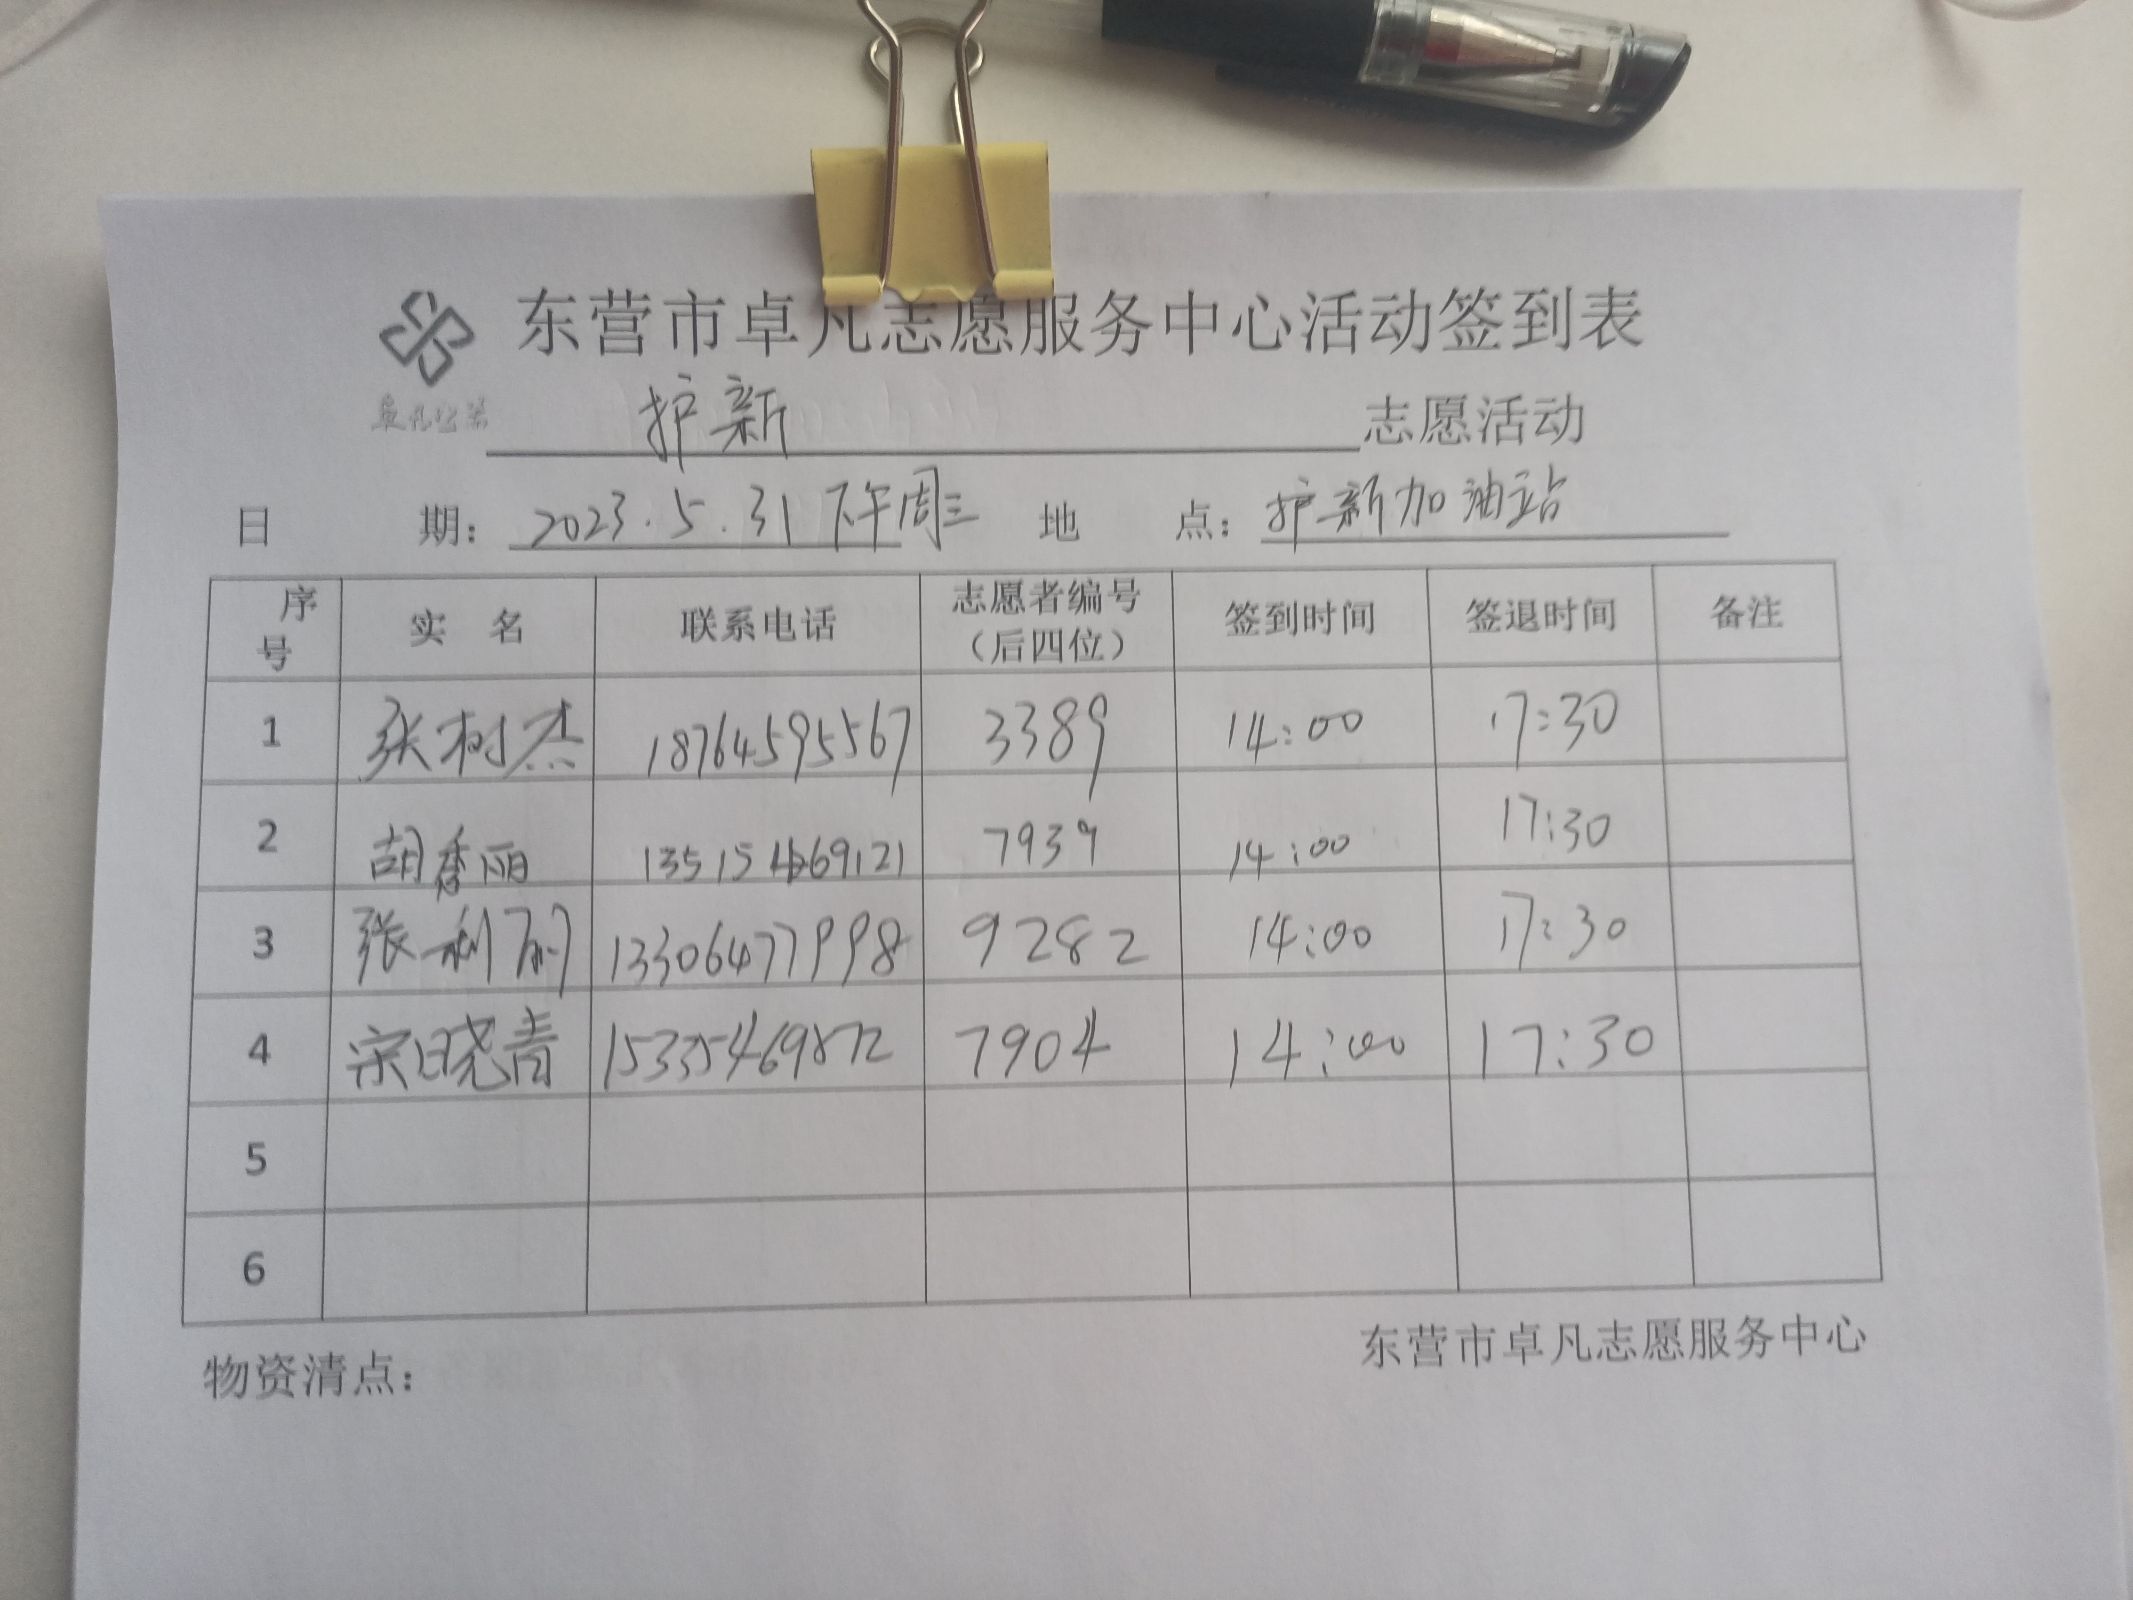 东营市卓凡志愿服务中心活动签到表
护新 志愿活动
日 期: 2023.5.31 下午周三 地 点: 护新加油站
序号 实 名 联系电话 志愿者编号（后四位） 签到时间 签退时间 备注
1 张树杰 18764595567 3389 14:00 17:30
2 胡香丽 7939 14:00 17:30
3 张利 13306477998 9282 14:00 17:30
4 宋晓青 15335469872 7904 14:00 17:30
5
6
物资清点: 东营市卓凡志愿服务中心